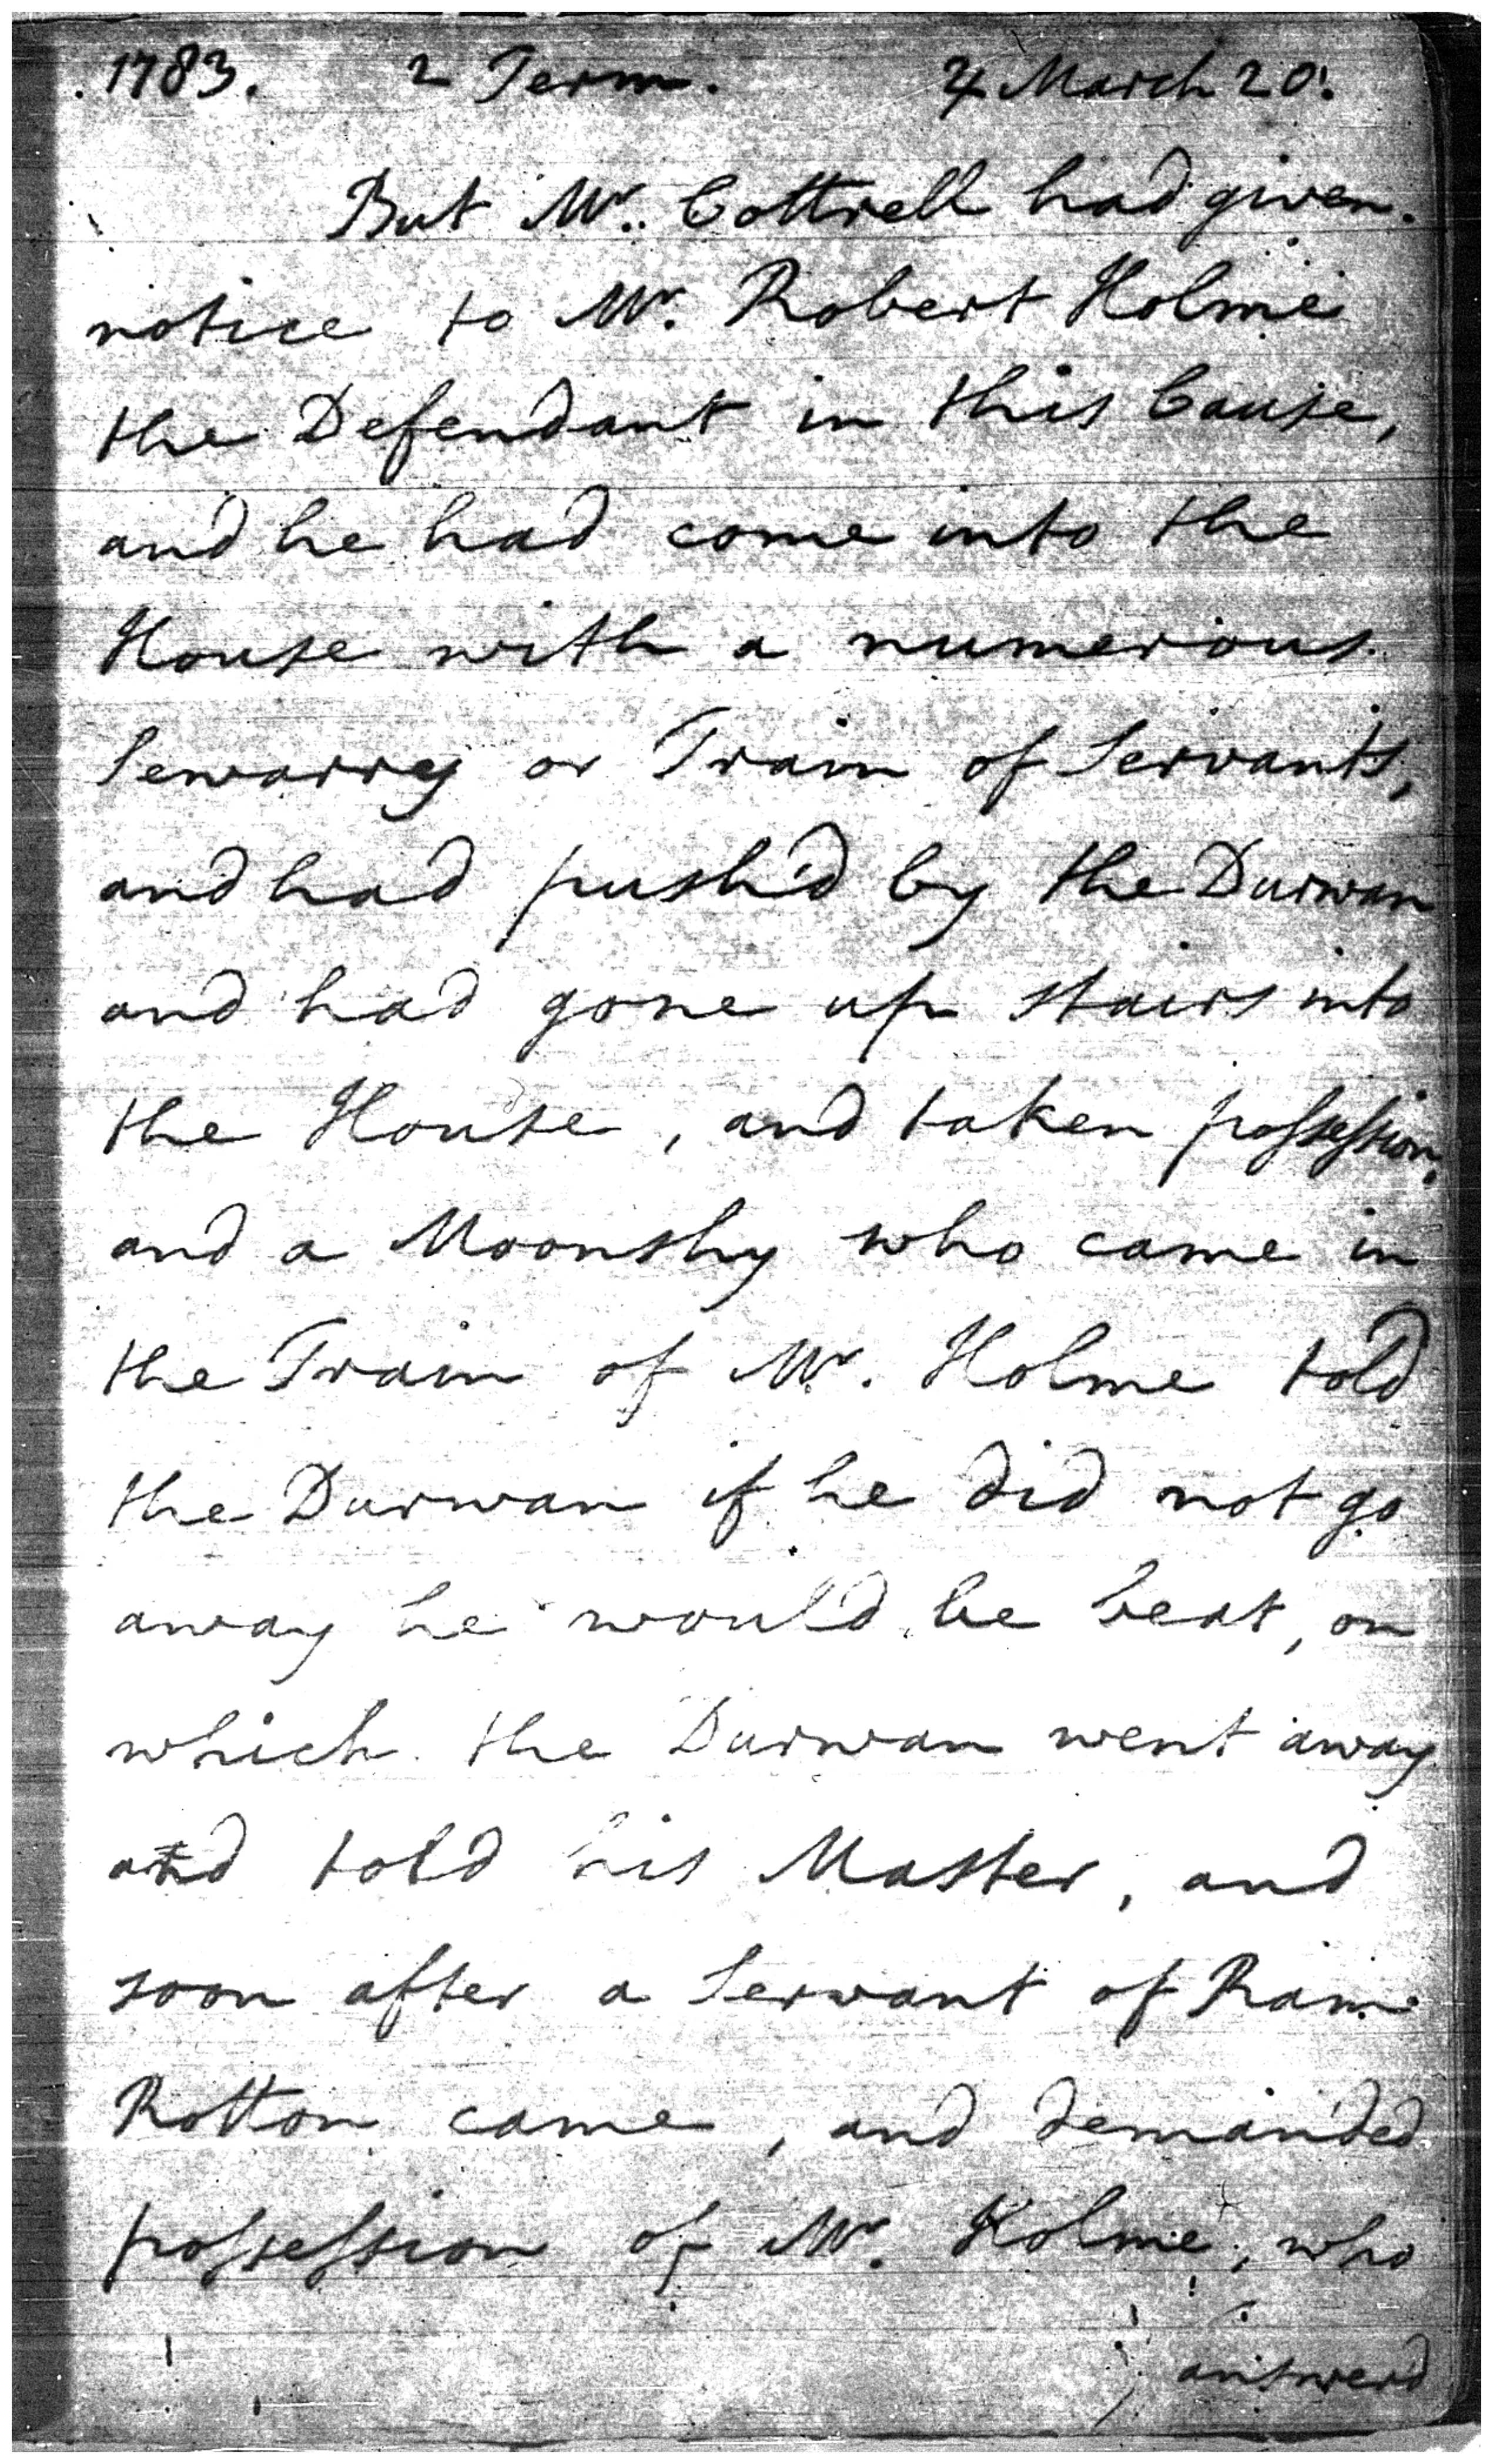 1783. 2 Term. ♃ March 20.
But Mr. Cottrell had given
notice to Mr. Robert Holme
the Defendant in this Cause,
and he had come into the
House with a numerous
Sewarry or Train of Servants,
and had push'd by the Durwan
and had gone up stairs into
the House, and taken possession,
and a Moonshy who came in
the Train of Mr. Holme told
the Durwan if he did not go
away he would be beat, on
which the Durwan went away
and told his Master, and
soon after a Servant of Ram
Rotton came, and demanded
possession of Mr. Holme, who
answerd